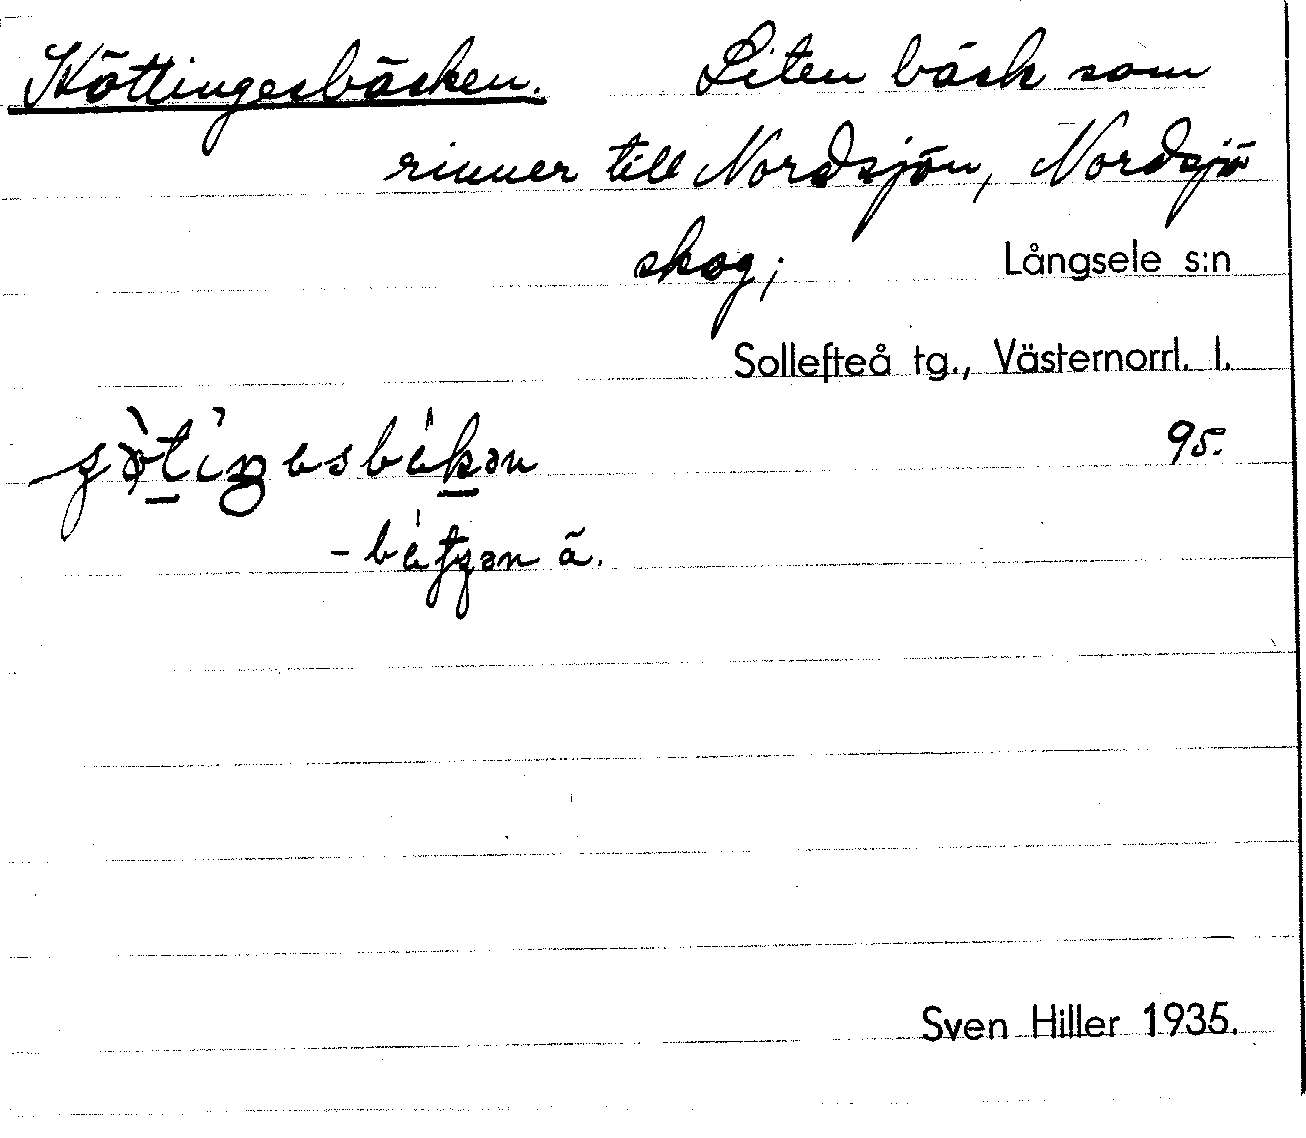 Höttingesbäcken. Liten bäck som
rinner till Nordsjön, Nordsjö
skog; Långsele s:n
Sollefteå tg., Västernorrl. l.
95.
ä.
Sven Hiller 1935.